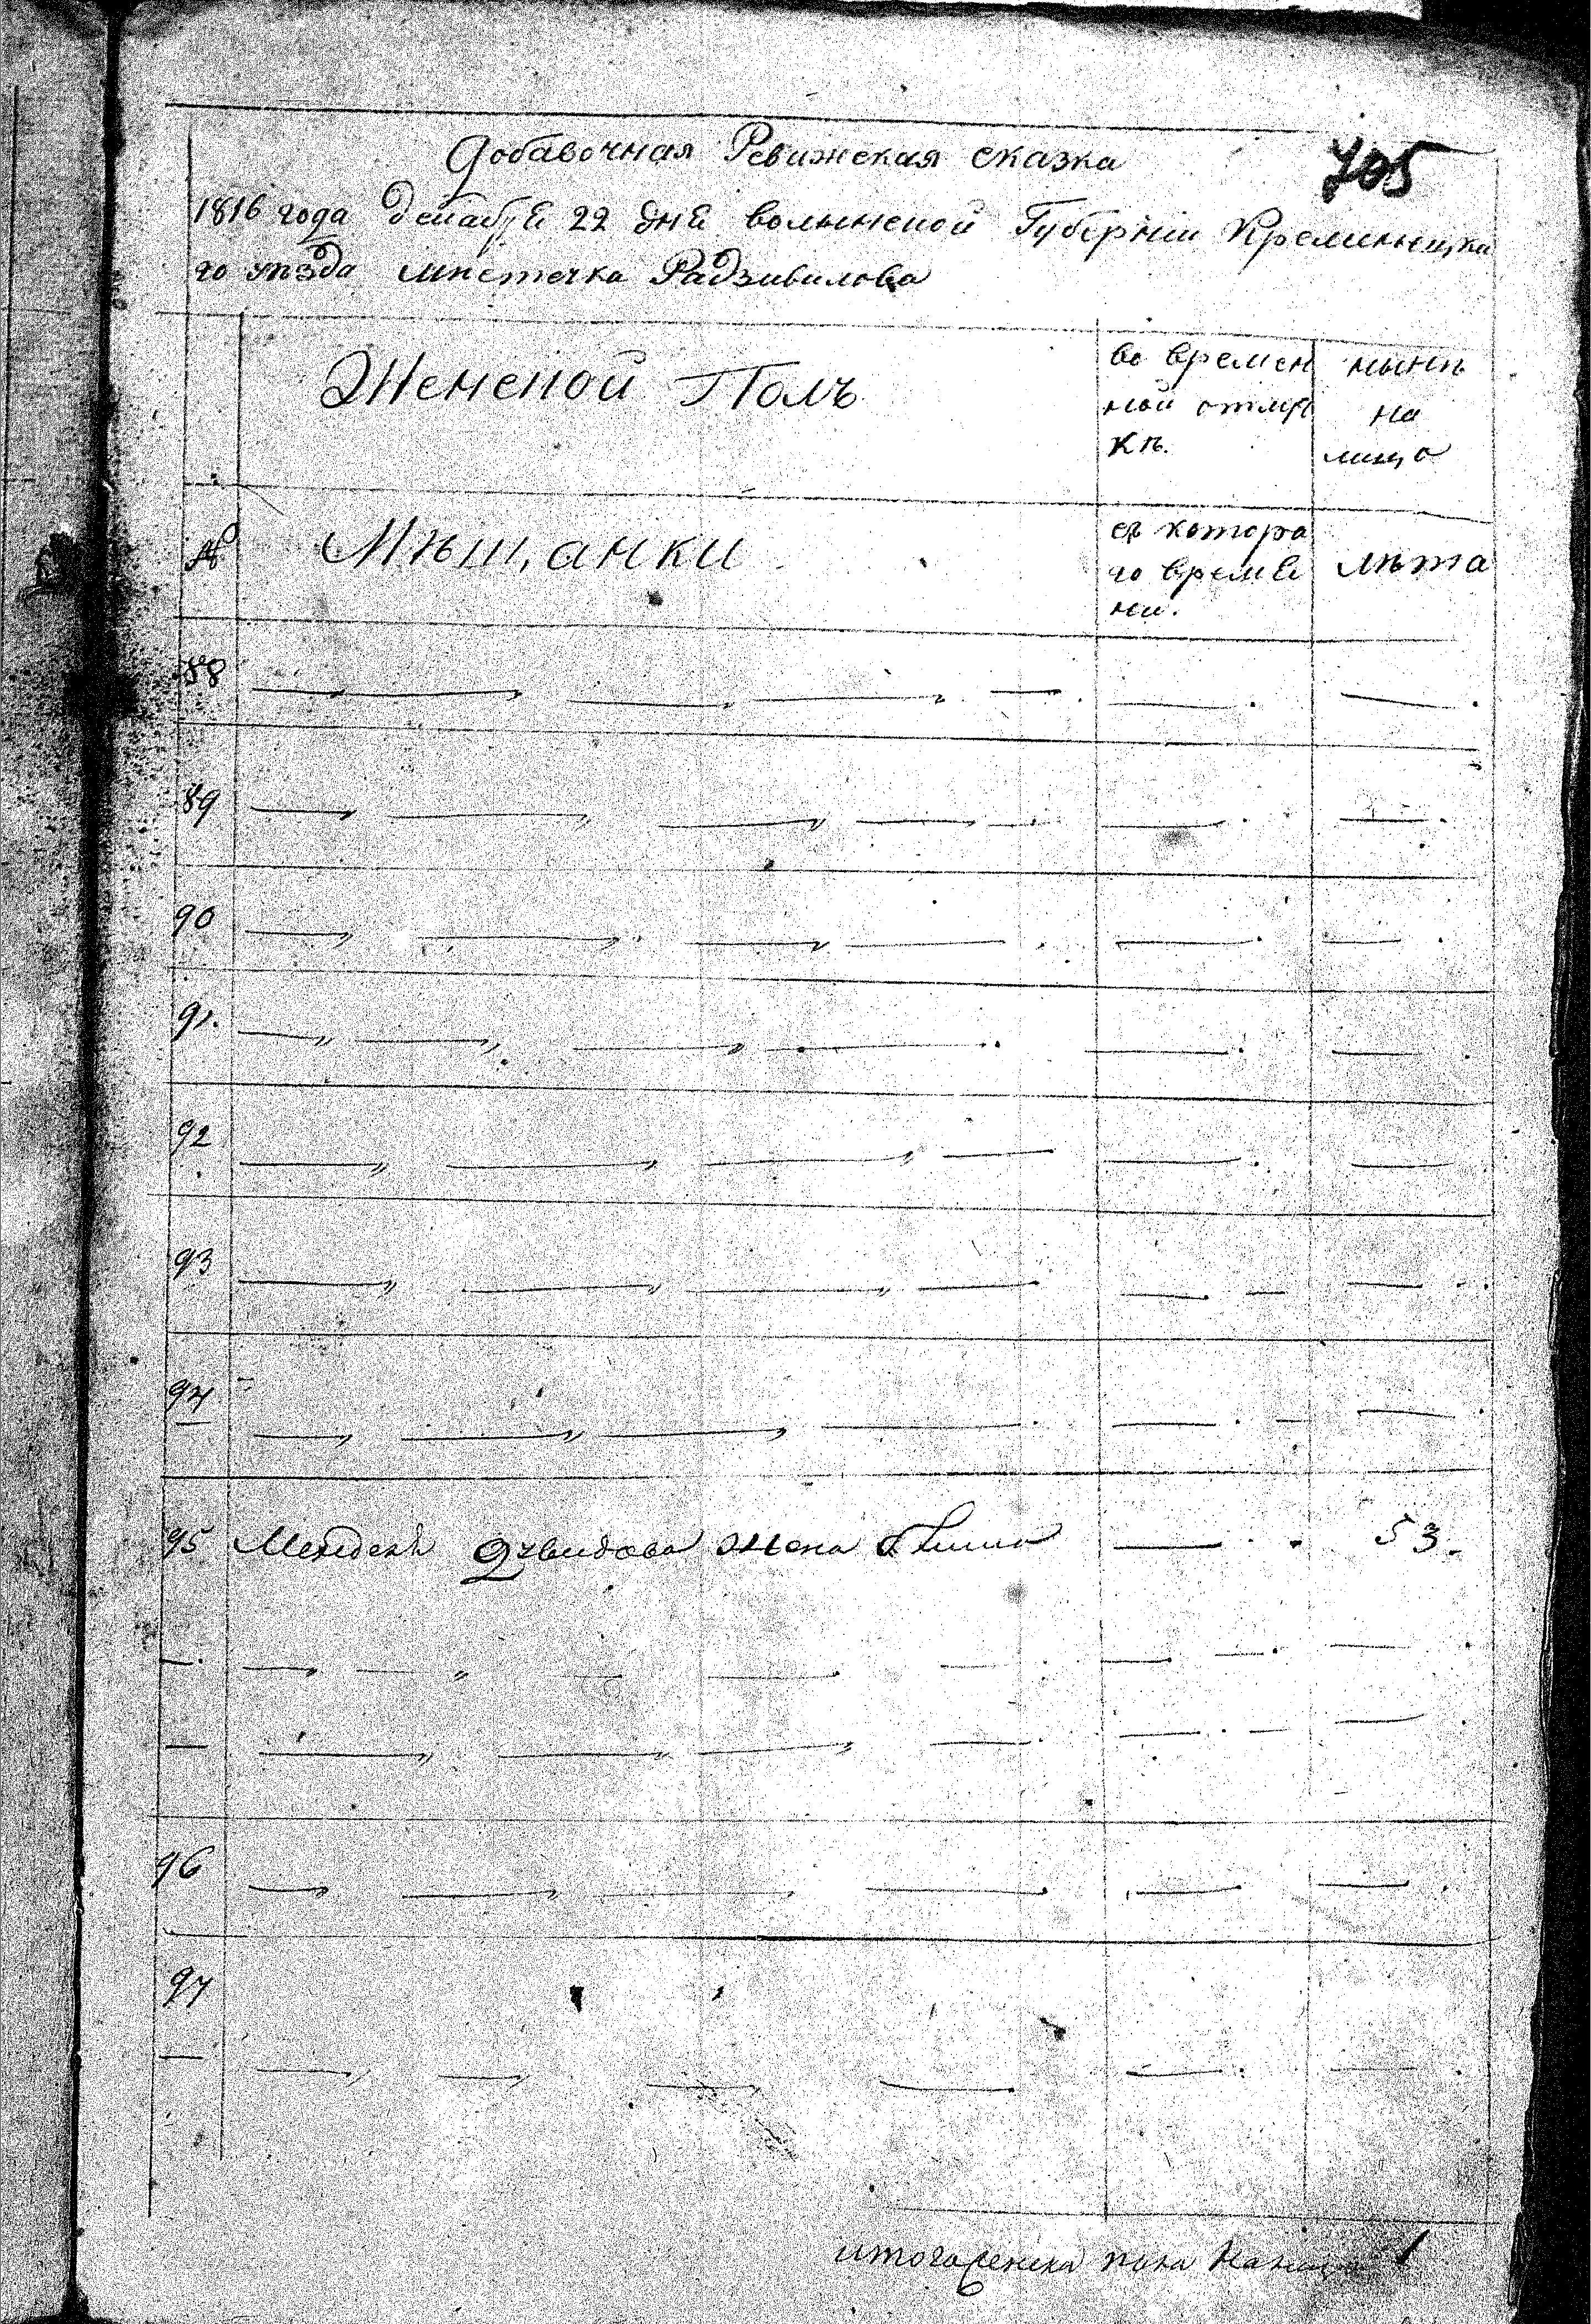 Добавочная Ревижская сказка
705
1816 года декабря 22 дня волынской Губернии Кременецка
го уѣзда мѣстечка Радзивилова
Женской Полъ
во времен
ной отлуч
кѣ.
нынѣ
на
лицо
№
Мѣщанки
съ котора
го време
ни.
лѣта
88
89
90
91.
92
93
94
95 жена 53.
96
97
итого женска пола 1